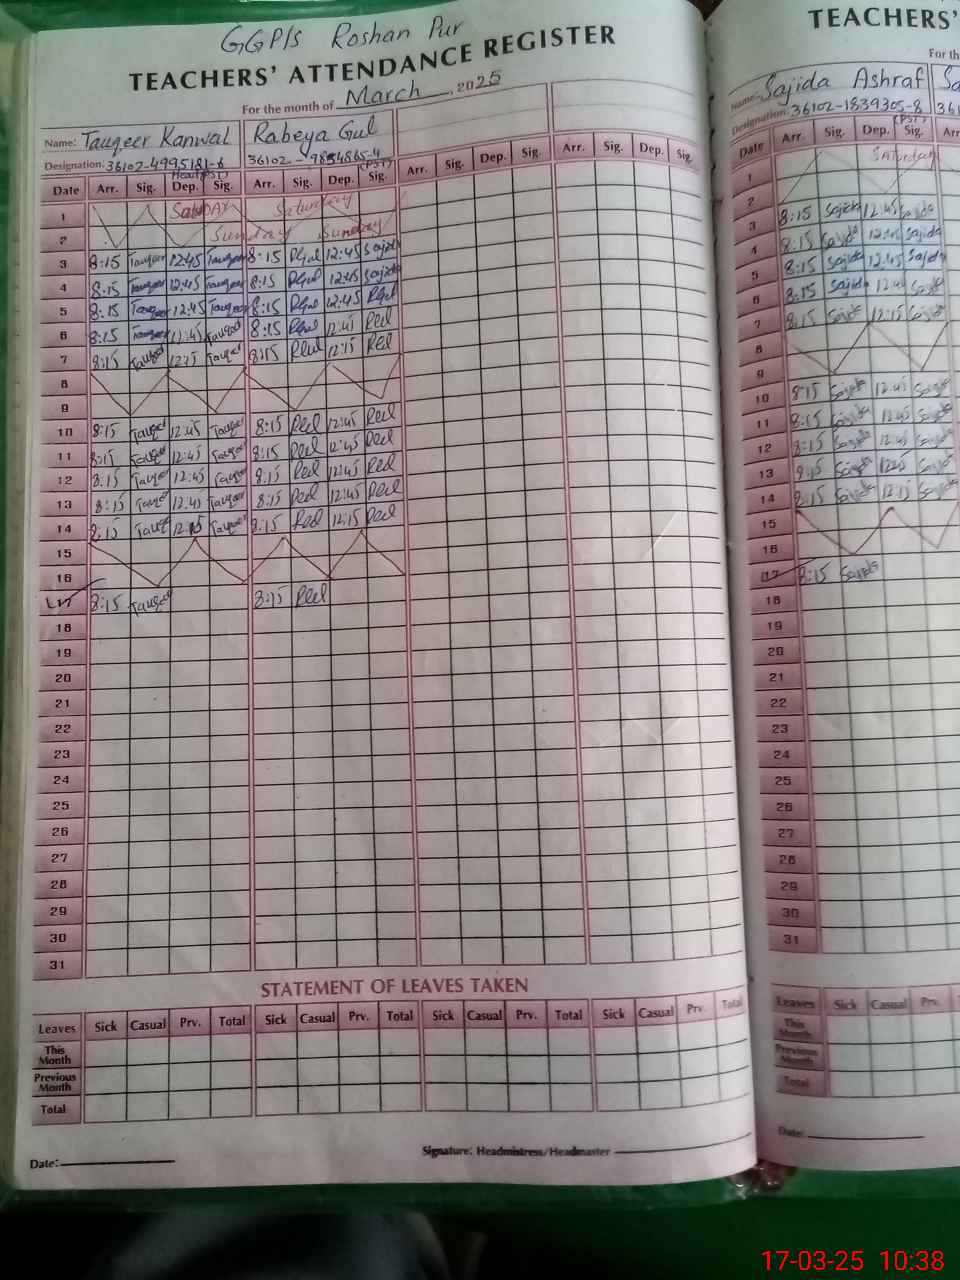 GGP/S Roshan Pur
TEACHERS' ATTENDANCE REGISTER
For the month of March, 2025
Name: Tauqeer Kanwal Rabeya Gul
Designation: 36102-4995181-6
Date Arr. Sig. Dep. Sig. Arr. Sig. Dep. Sig. Arr. Sig. Dep. Sig. Arr. Sig. Dep. Sig.
1 Saturday
2 Sunday Sunday
3 8:15 Tauqeer 12:45 Tauqeer 8:15 RGul 12:45 Sajida
4 8:15 Tauqeer 12:45 Tauqeer 8:15 RGul 12:45 Sajida
5 8:15 Tauqeer 12:45 Tauqeer 8:15 RGul 12:45 RGul
6 8:15 Tauqeer 12:45 Tauqeer 8:15 RGul 12:45
7 8:15 Tauqeer 12:15 Tauqeer 8:15 12:15
8
9
10 8:15 Tauqeer 12:45 Tauqeer 8:15 12:45
11 8:15 Tauqeer 12:45 Tauqeer 8:15 12:45
12 8:15 Tauqeer 12:45 Tauqeer 8:15 12:45
13 8:15 Tauqeer 12:45 Tauqeer 8:15 12:45
14 8:15 Tauqeer 12:15 Tauqeer 8:15 12:15
15
16
17 8:15 Tauqeer 8:15
18
19
20
21
22
23
24
25
26
27
28
29
30
31
STATEMENT OF LEAVES TAKEN
Leaves Sick Casual Prv. Total Sick Casual Prv. Total Sick Casual Prv. Total Sick Casual Prv. Total
This Month
Previous Month
Total
Date:
Signature: Headmistress/Headmaster
TEACHERS'
For th
Name: Sajida Ashraf
Designation: 36102-1839305-8
(PST)
Date Arr. Sig. Dep. Sig. Arr
1 Saturday
2
3 8:15 Sajida 12:45 Sajida
4 8:15 Sajida 12:45 Sajida
5 8:15 Sajida 12:45 Sajida
6 8:15 Sajida 12:45 Sajida
7 8:15 Sajida 12:15 Sajida
8
9
10 8:15 Sajida 12:45 Sajida
11 8:15 Sajida 12:45 Sajida
12 8:15 Sajida 12:45 Sajida
13 8:15 Sajida Sajida
14 8:15 Sajida 12:15 Sajida
15
16
17 8:15 Sajida
18
19
20
21
22
23
24
25
26
27
28
29
30
31
Leaves Sick Casual Prv.
This Month
Previous Month
Total
Date:
17-03-25 10:38